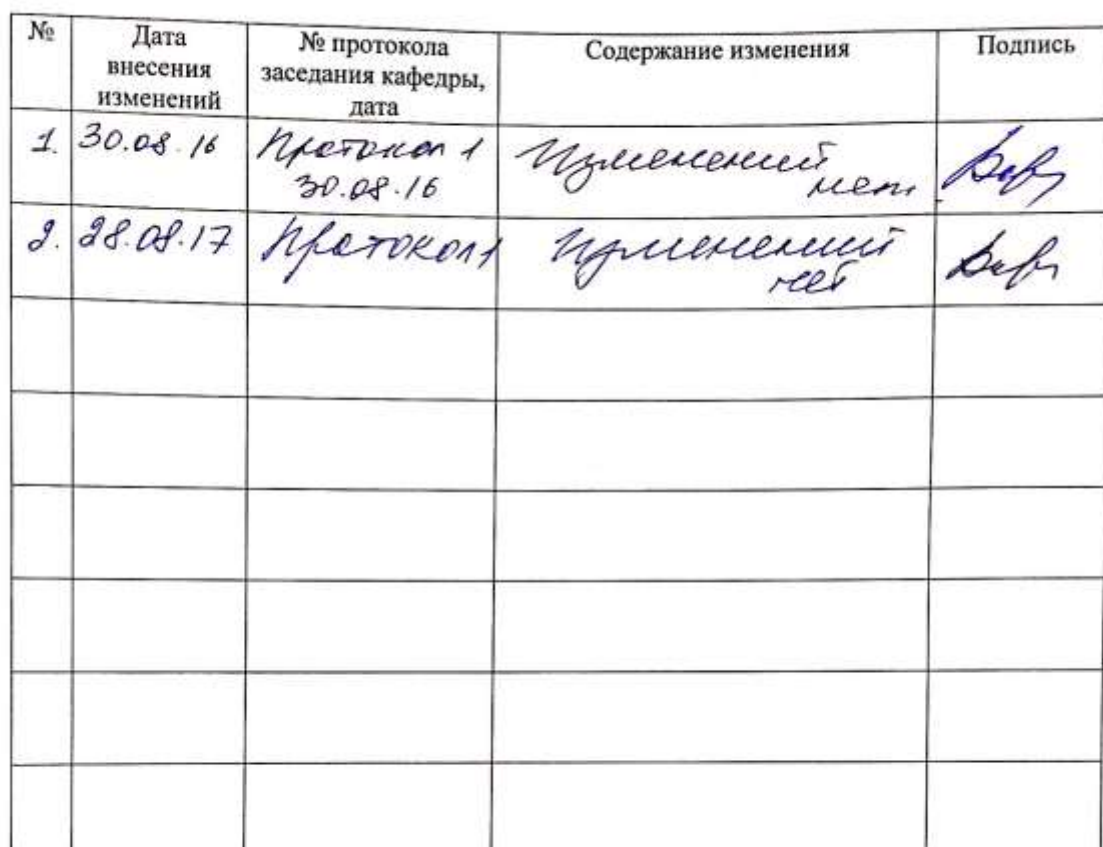 № Дата внесения изменений № протокола заседания кафедры, дата Содержание изменения Подпись
1. 30.08.16 Протокол 1 30.08.16 Изменений нет
2. 28.08.17 Протокол 1 Изменений нет